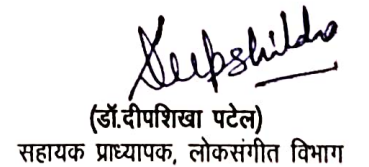 Deepshikha
(डॉ.दीपशिखा पटेल)
सहायक प्राध्यापक, लोकसंगीत विभाग